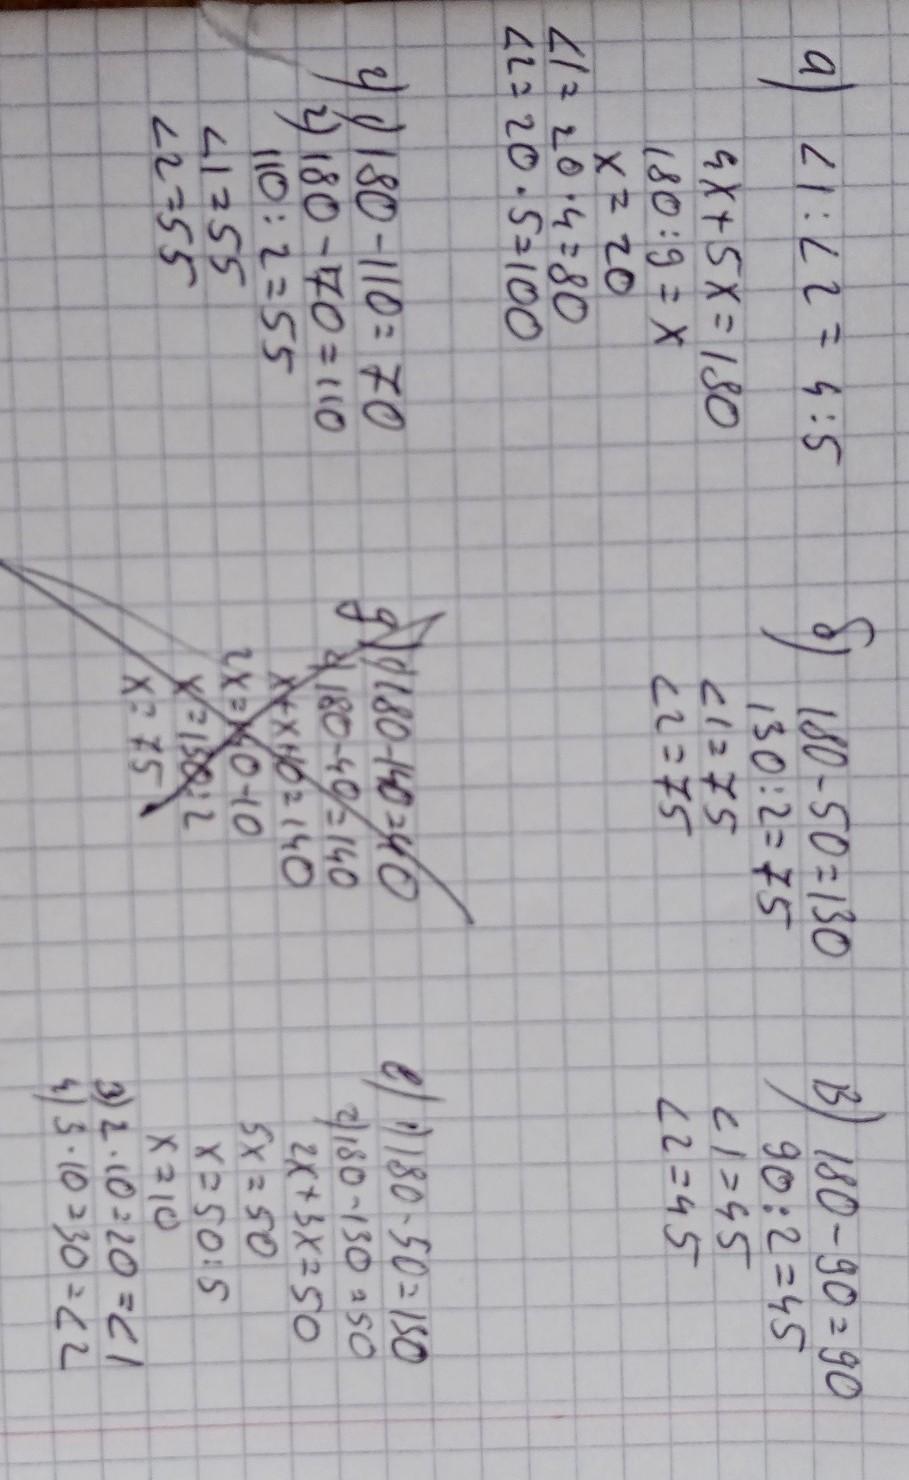 а) ∠1:∠2=4:5
4x+5x=180
180:9=x
x=20
∠1=20·4=80
∠2=20·5=100
б) 180-50=130
130:2=75
∠1=75
∠2=75
в) 180-90=90
90:2=45
∠1=45
∠2=45
г) 1) 180-110=70
2) 180-70=110
110:2=55
∠1=55
∠2=55
д) 1) 180-140=40
2) 180-40=140
x+x+10=140
2x=140-10
x=130:2
x=75
е) 1) 180-50=130
2) 180-130=50
2x+3x=50
5x=50
x=50:5
x=10
3) 2·10=20=∠1
4) 3·10=30=∠2